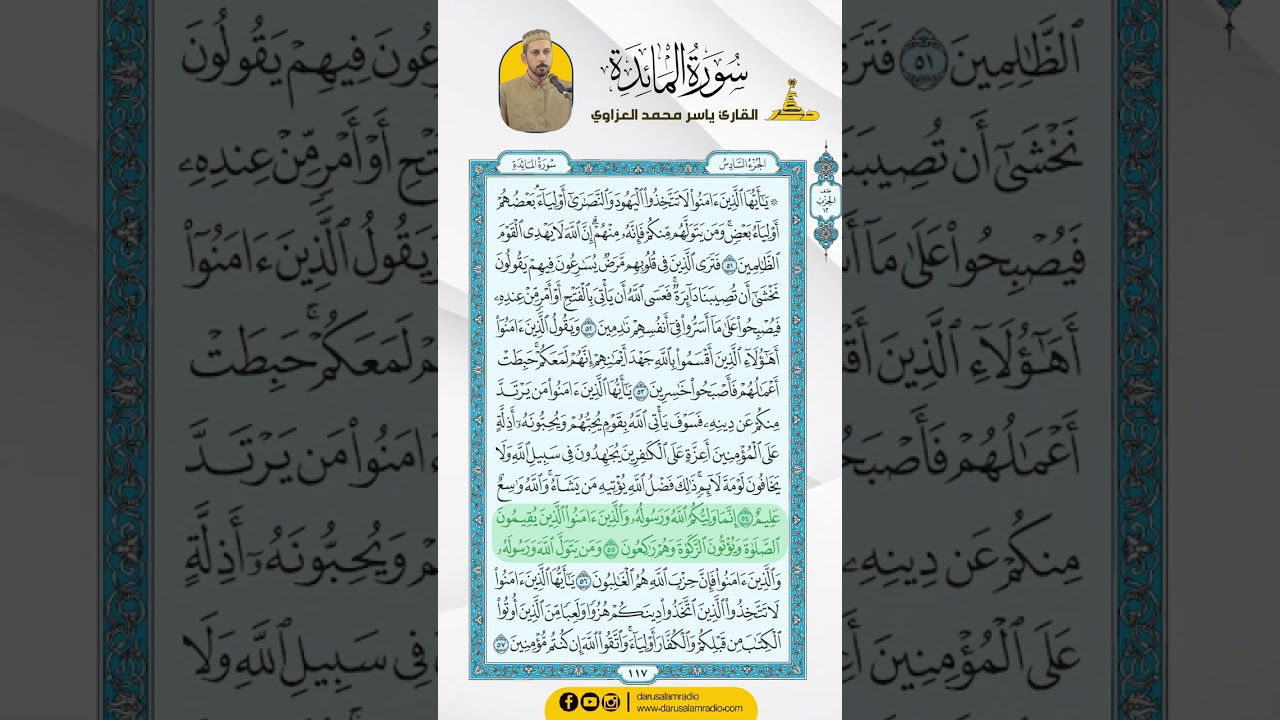 سُورَةُ المَائِدَةِ
القارئ ياسر محمد العزاوي
ذكر
الجُزْءُ السَّادِسُ
سُورَةُ المَائِدَةِ
۞ يَـٰٓأَيُّهَا ٱلَّذِينَ ءَامَنُوا۟ لَا تَتَّخِذُوا۟ ٱلْيَهُودَ وَٱلنَّصَـٰرَىٰٓ أَوْلِيَآءَ ۘ بَعْضُهُمْ
أَوْلِيَآءُ بَعْضٍ ۚ وَمَن يَتَوَلَّهُم مِّنكُمْ فَإِنَّهُۥ مِنْهُمْ ۗ إِنَّ ٱللَّهَ لَا يَهْدِى ٱلْقَوْمَ
ٱلظَّـٰلِمِينَ ٥١ فَتَرَى ٱلَّذِينَ فِى قُلُوبِهِم مَّرَضٌ يُسَـٰرِعُونَ فِيهِمْ يَقُولُونَ
نَخْشَىٰٓ أَن تُصِيبَنَا دَآئِرَةٌ ۚ فَعَسَى ٱللَّهُ أَن يَأْتِىَ بِٱلْفَتْحِ أَوْ أَمْرٍ مِّنْ عِندِهِۦ
فَيُصْبِحُوا۟ عَلَىٰ مَآ أَسَرُّوا۟ فِىٓ أَنفُسِهِمْ نَـٰدِمِينَ ٥٢ وَيَقُولُ ٱلَّذِينَ ءَامَنُوٓا۟
أَهَـٰٓؤُلَآءِ ٱلَّذِينَ أَقْسَمُوا۟ بِٱللَّهِ جَهْدَ أَيْمَـٰنِهِمْ ۙ إِنَّهُمْ لَمَعَكُمْ ۚ حَبِطَتْ
أَعْمَـٰلُهُمْ فَأَصْبَحُوا۟ خَـٰسِرِينَ ٥٣ يَـٰٓأَيُّهَا ٱلَّذِينَ ءَامَنُوا۟ مَن يَرْتَدَّ
مِنكُمْ عَن دِينِهِۦ فَسَوْفَ يَأْتِى ٱللَّهُ بِقَوْمٍ يُحِبُّهُمْ وَيُحِبُّونَهُۥٓ أَذِلَّةٍ
عَلَى ٱلْمُؤْمِنِينَ أَعِزَّةٍ عَلَى ٱلْكَـٰفِرِينَ يُجَـٰهِدُونَ فِى سَبِيلِ ٱللَّهِ وَلَا
يَخَافُونَ لَوْمَةَ لَآئِمٍ ۚ ذَٰلِكَ فَضْلُ ٱللَّهِ يُؤْتِيهِ مَن يَشَآءُ ۚ وَٱللَّهُ وَٰسِعٌ
عَلِيمٌ ٥٤ إِنَّمَا وَلِيُّكُمُ ٱللَّهُ وَرَسُولُهُۥ وَٱلَّذِينَ ءَامَنُوا۟ ٱلَّذِينَ يُقِيمُونَ
ٱلصَّلَوٰةَ وَيُؤْتُونَ ٱلزَّكَوٰةَ وَهُمْ رَٰكِعُونَ ٥٥ وَمَن يَتَوَلَّ ٱللَّهَ وَرَسُولَهُۥ
وَٱلَّذِينَ ءَامَنُوا۟ فَإِنَّ حِزْبَ ٱللَّهِ هُمُ ٱلْغَـٰلِبُونَ ٥٦ يَـٰٓأَيُّهَا ٱلَّذِينَ ءَامَنُوا۟
لَا تَتَّخِذُوا۟ ٱلَّذِينَ ٱتَّخَذُوا۟ دِينَكُمْ هُزُوًا وَلَعِبًا مِّنَ ٱلَّذِينَ أُوتُوا۟
ٱلْكِتَـٰبَ مِن قَبْلِكُمْ وَٱلْكُفَّارَ أَوْلِيَآءَ ۚ وَٱتَّقُوا۟ ٱللَّهَ إِن كُنتُم مُّؤْمِنِينَ ٥٧
١١٧
darusalamradio
www.darusalamradio.com